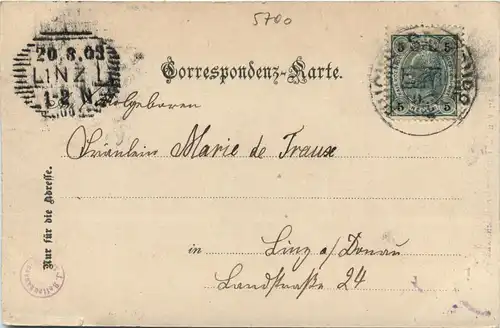 5700
20.8.03
LINZ 1
1-2 N
Correspondenz-Karte.
5 5
5 5
Wolgeboren
Fräulein Marie de Traux
in Linz a/Donau
Landstraße 24
Nur für die Adresse.